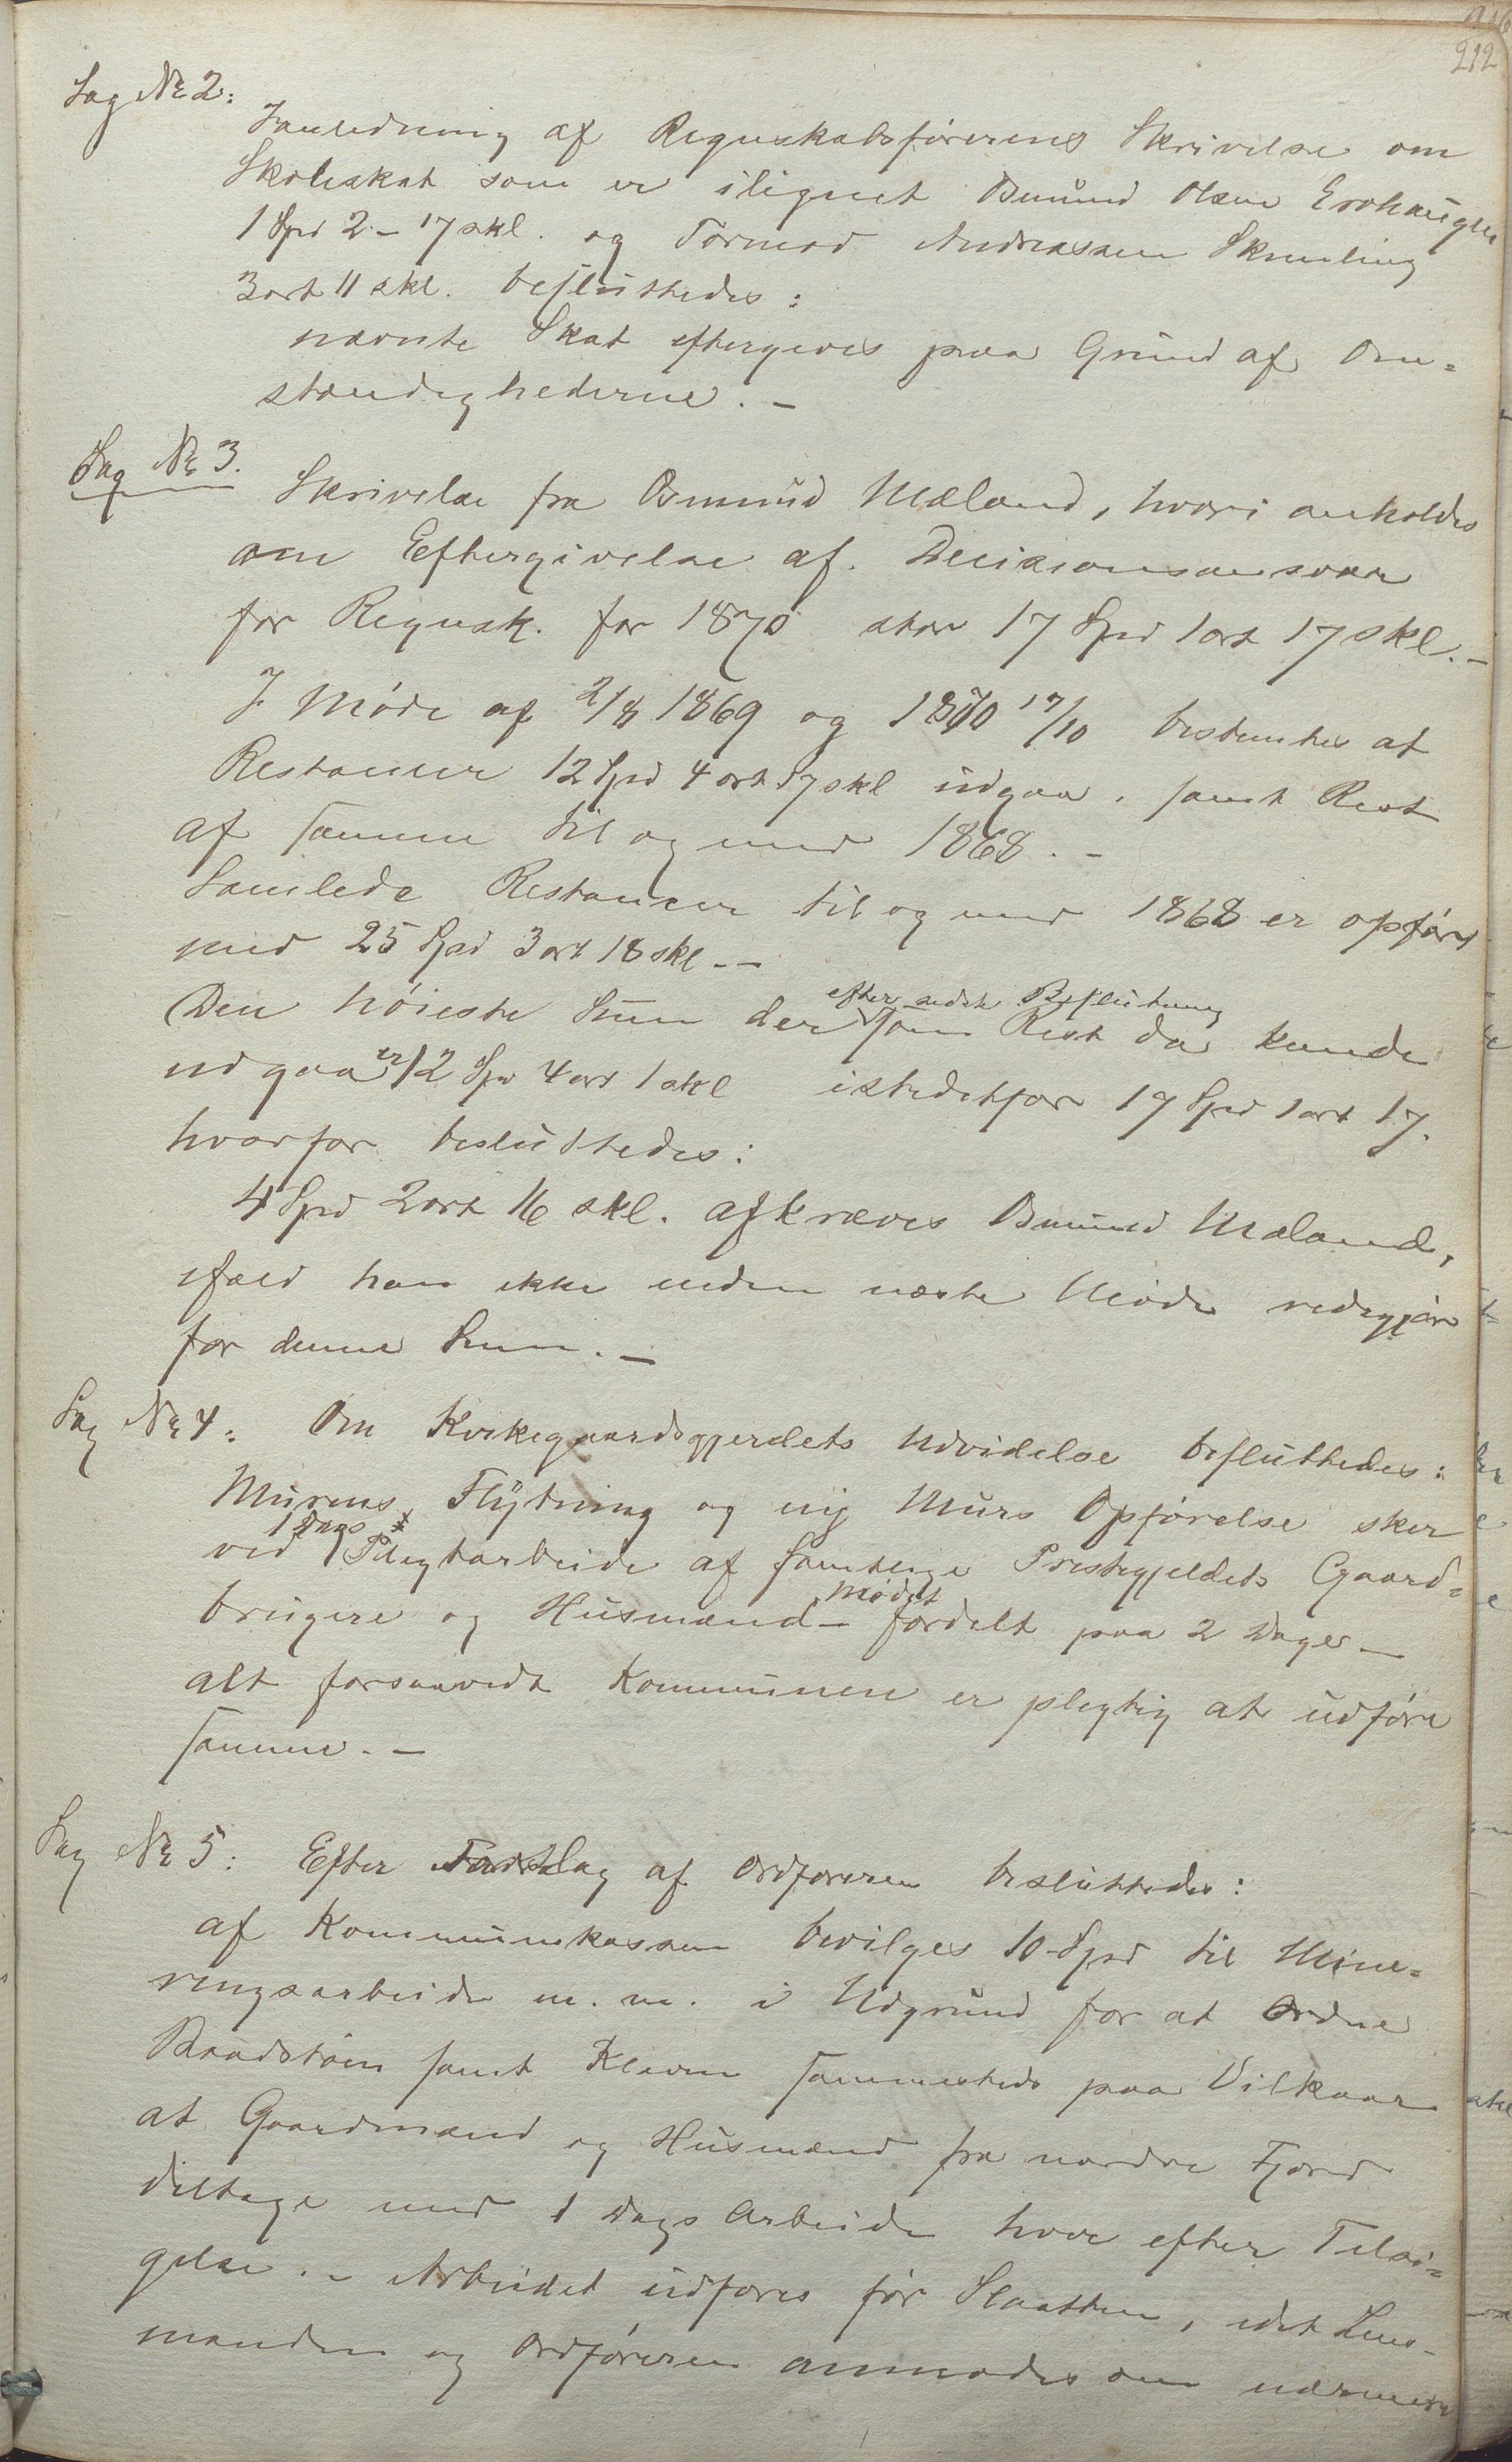 212
Sag No 2:
Ianledning af Regnskabsførerens Skrivelse om
Skoleskat som er ilignet Osmund Olsen Erohaugen
1 Spd 2 - 17 skl. og Tormod Andreassen Skreeling
3 ort 11 skl. besluttedes:
nævnte Skat eftergives paa Grund af Om-
stændighederne. -
Sag No 3.
Skrivelse fra Osmund Mæland, hvori anholdes
om Eftergivelse af Decisionsansvar
for Regnsk. for 1870 stor 17 Spd 1 ort 17 skl. -
I Møde af 2/8 1869 og 1870 17/10 bestemtes at
Restancer 12 Spd 4 ort 17 skl udgaa, samt Rest
af samme til og med 1868. -
Samlede Restancer til og med 1868 er opført
med 25 Spd 3 ort 18 skl. -
efter sidste Beslutning
Den høieste Sum der som Rest da kunde
udgaa er 12 Spd 4 ort 1 skl istedetfor 17 Spd 1 ort 17.
hvorfor besluttedes:
4 Spd 2 ort 16 skl. afkræves Osmund Mæland,
ifald han ikke inden næste Møde redegjør
for denne Sum. -
Sag No 4: Om Kirkegaardsgjerdets Udvidelse besluttedes:
Murens Flytning og ny Murs Opførelse sker
1 Dags
ved Pligtarbeide af samtlige Prestegjeldets Gaard-
Mødet
brugere og Husmænd - fordelt paa 2 Dage -
alt forsaavidt Kommunen er plegtig at udføre
samme. -
Sag No 5: Efter Forslag af Ordføreren besluttedes:
af Kommunekassen bevilges 10 Spd til Mine-
ringsarbeide m. m. i Udgrund for at Ordne
Baadstøen samt Kleven sammesteds paa Vilkaar
at Gaardmænd og Husmænd fra nordre Fjord
deltage med 1 Dags Arbeide hver efter Tilsi-
gelse. - Arbeidet udføres før Slaatten, idet Lens-
manden og Ordføreren anmodes om nærmere